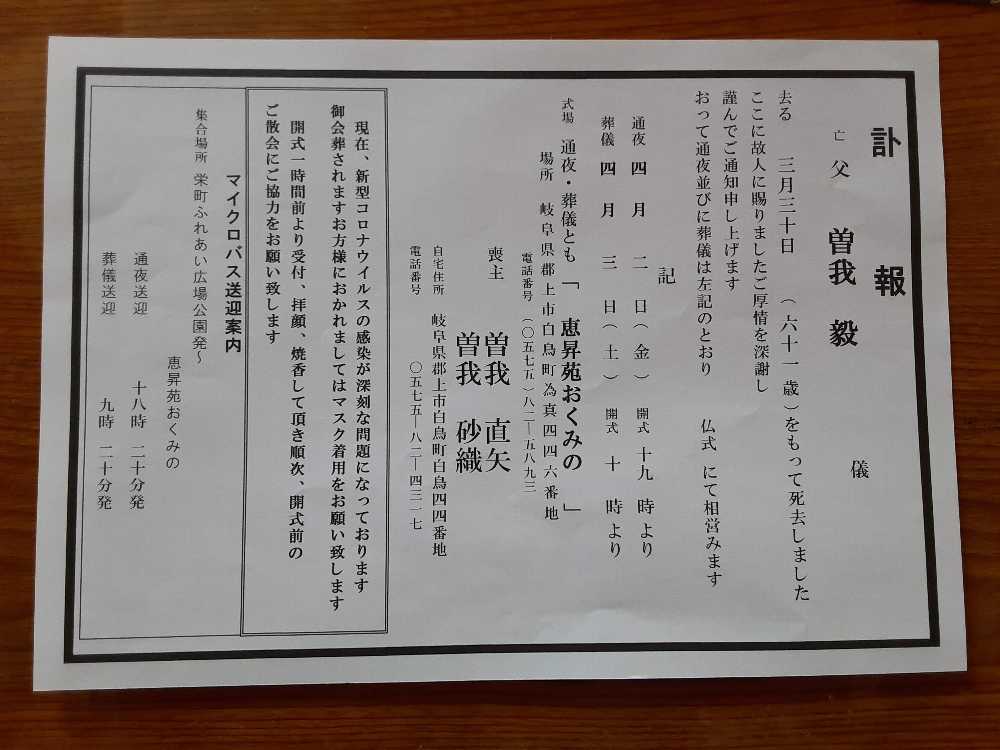 訃報
亡父 曽我 毅 儀
去る 三月三十日 (六十一歳)をもって死去しました
ここに故人に賜りましたご厚情を深謝し
謹んでご通知申し上げます
おって通夜並びに葬儀は左記のとおり 仏式 にて相営みます
記
通夜 四月 二日(金) 開式 十九 時より
葬儀 四月 三日(土) 開式 十 時より
式場 通夜・葬儀とも 「 恵昇苑おくみの 」
場所 岐阜県郡上市白鳥町為真四四六番地
電話番号(〇五七五)八二―五八九三
喪主 曽我 直矢
曽我 砂織
自宅住所 岐阜県郡上市白鳥町白鳥四四番地
電話番号 〇五七五―八二―四三一七
現在、新型コロナウイルスの感染が深刻な問題になっております
御会葬されますお方様におかれましてはマスク着用をお願い致します
開式一時間前より受付、拝顔、焼香して頂き順次、開式前の
ご散会にご協力をお願い致します
マイクロバス送迎案内
集合場所 栄町ふれあい広場公園発~
恵昇苑おくみの
通夜送迎 十八時 二十分発
葬儀送迎 九時 二十分発